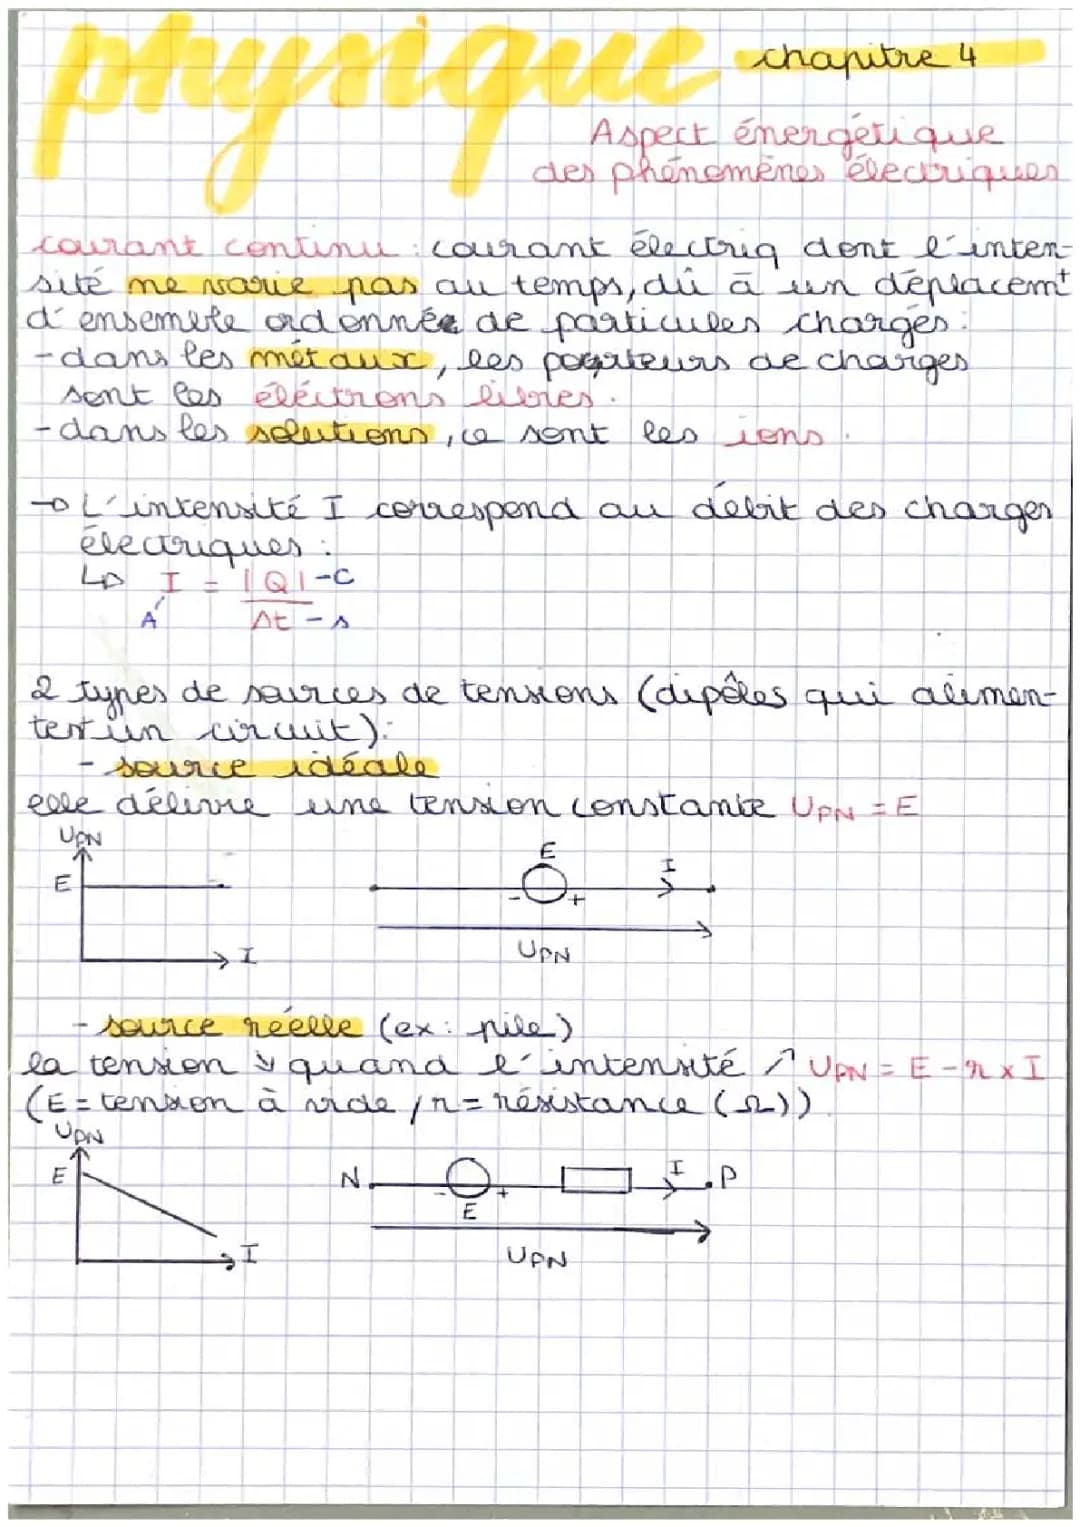 physique
chapitre 4
Aspect énergétique
des phénomènes électriques
courant continu : courant électriq dont l'inten-
sité ne varie pas au temps, dû à un déplacemt
d'ensemble ordonnée de particules charges :
- dans les métaux, les porteurs de charges
sont les éléctrons libres.
- dans les solutions, ce sont les ions.
→ L'intensité I correspond au débit des charges
électriques :
↳ I = |Q| - C
A Δt - s
2 types de sources de tensions (dipôles qui alimen-
tent un circuit):
- source idéale
elle délivre une tension constante UPN = E
UPN
E
I
E
- +
I
UPN
- source réelle (ex: pile)
la tension ↘ quand l'intensité ↗ UPN = E - r x I
(E = tension à vide / r = résistance (Ω))
UPN
E
I
N
- +
E
I
P
UPN